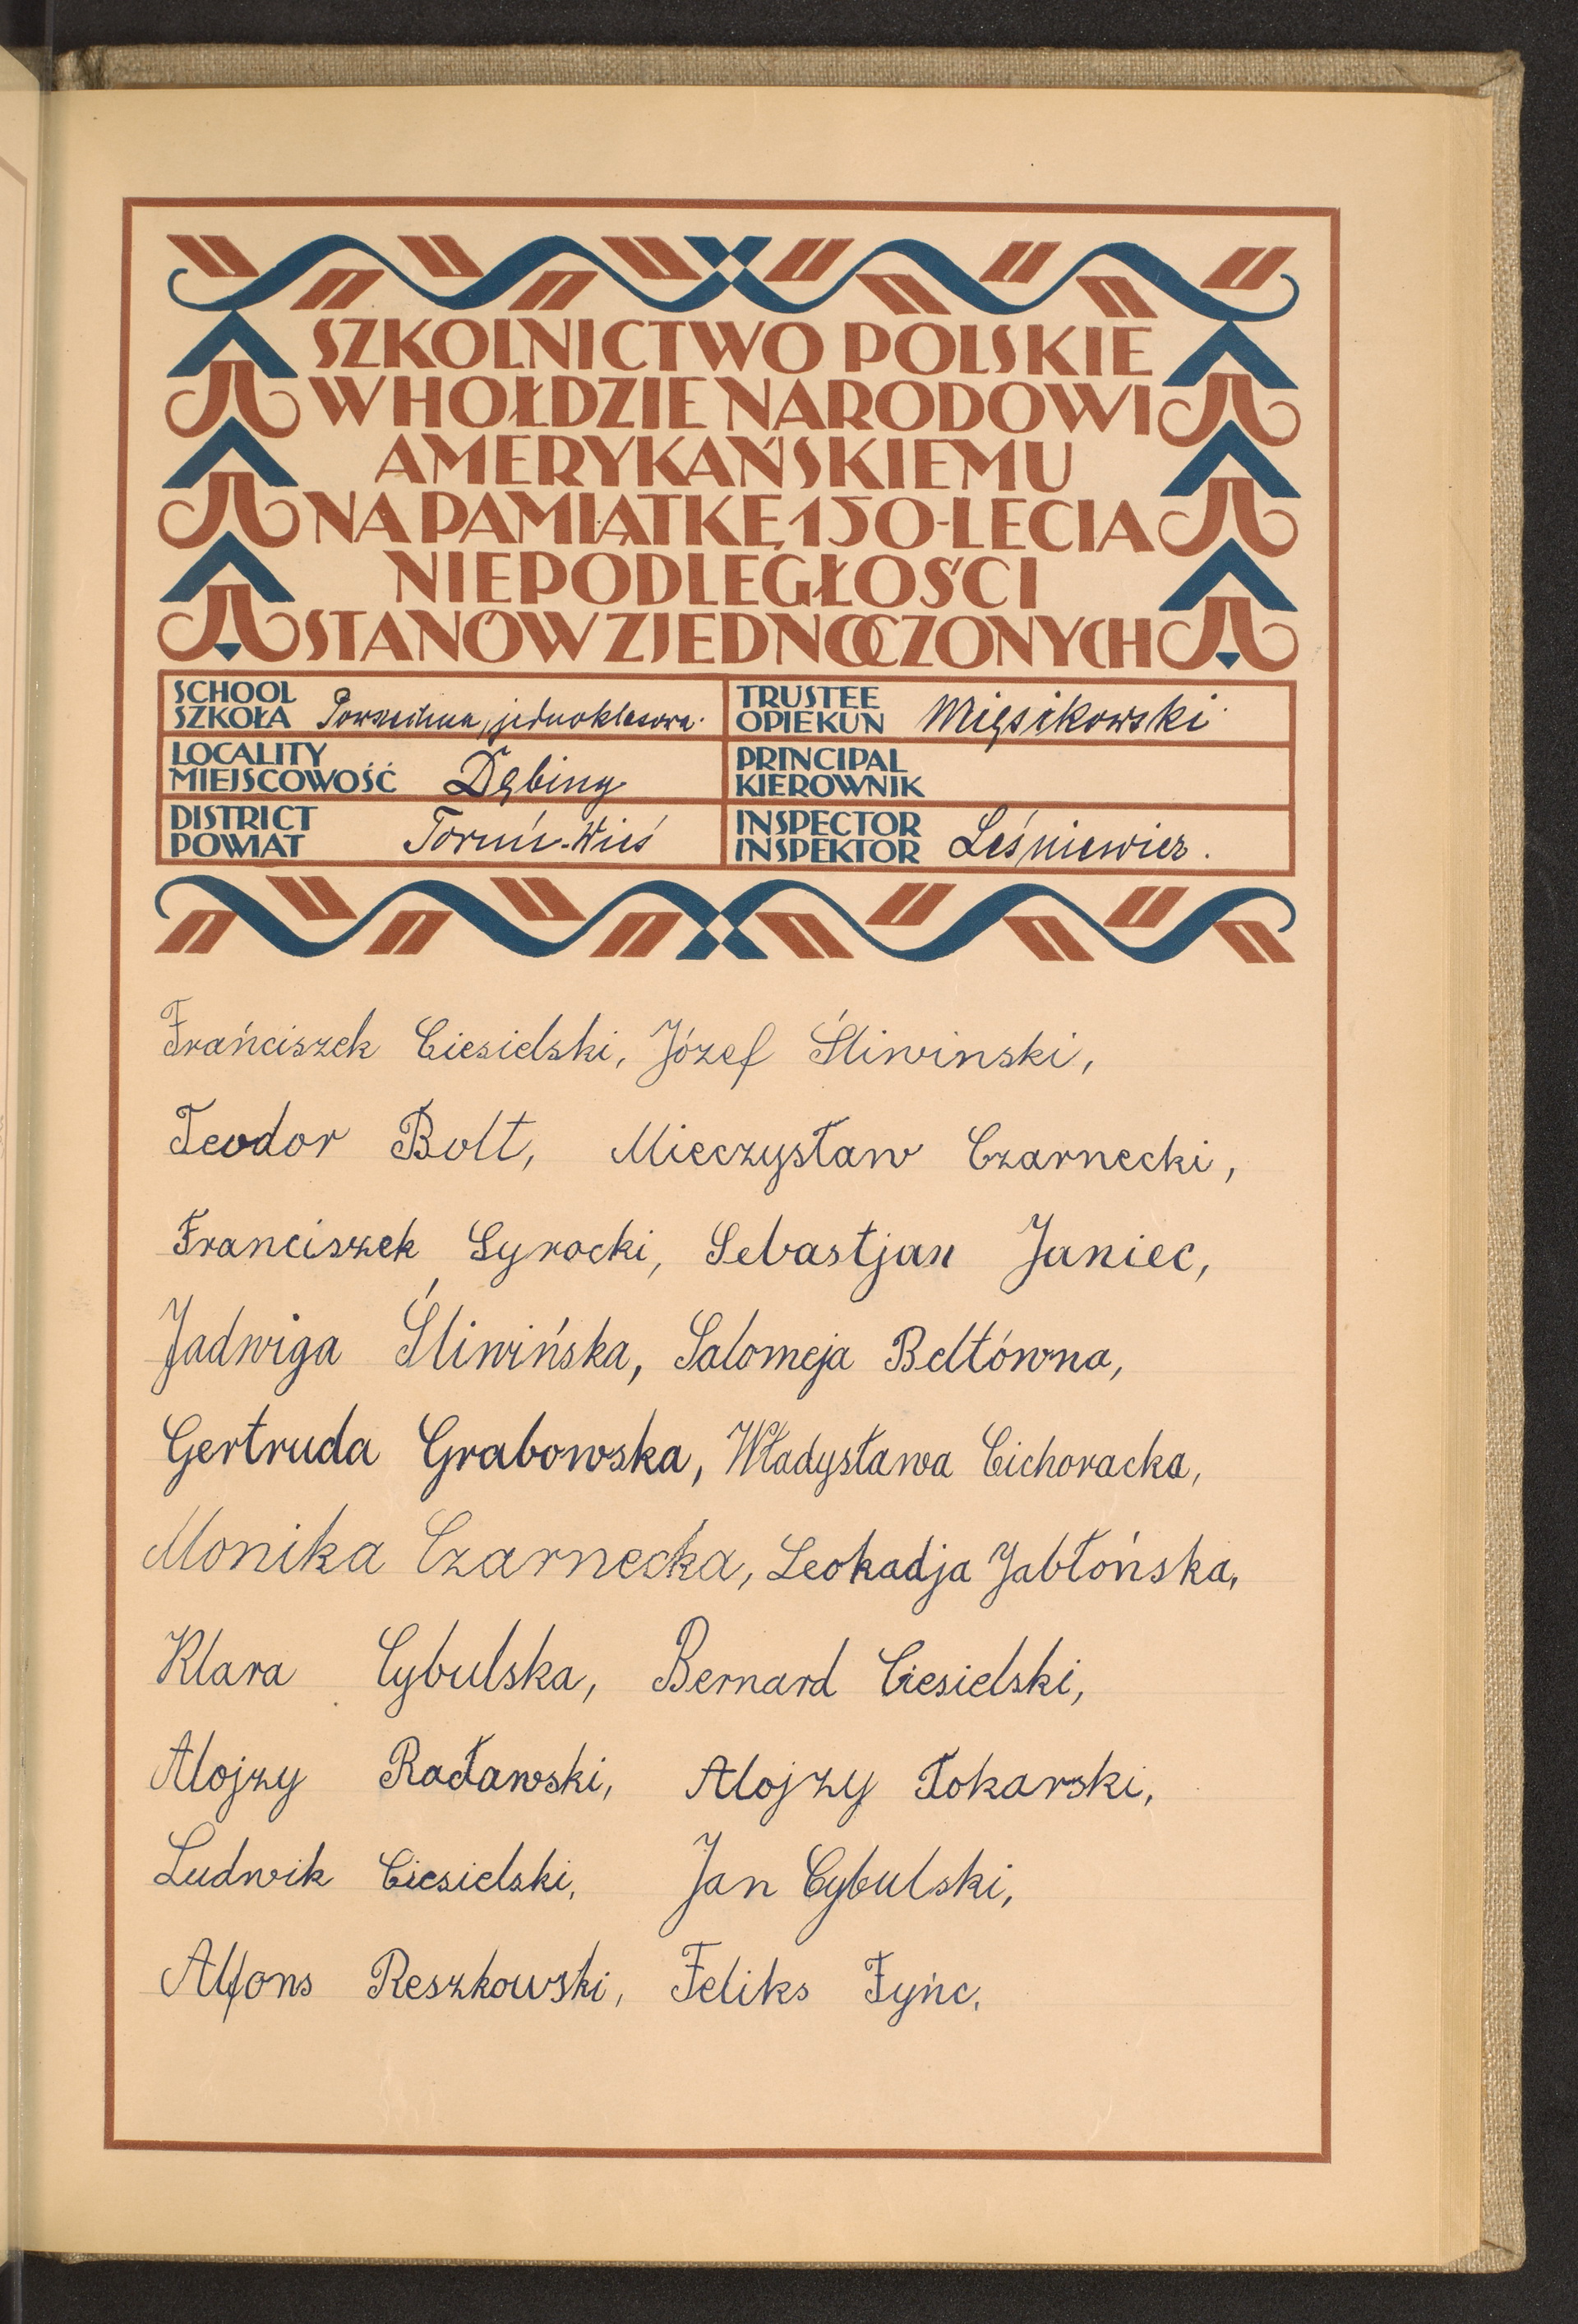 SZKOLNICTWO POLSKIE
W HOŁDZIE NARODOWI
AMERYKAŃSKIEMU
NA PAMIĄTKĘ 150-LECIA
NIEPODLEGŁOŚCI
STANÓW ZJEDNOCZONYCH
SCHOOL
SZKOŁA Powszechna, jednoklasowa.
TRUSTEE
OPIEKUN Mięsikowski
LOCALITY
MIEJSCOWOŚĆ Dębiny
PRINCIPAL
KIEROWNIK
DISTRICT
POWIAT Toruń-Wieś
INSPECTOR
INSPEKTOR Leśniewicz.
Frańciszek Ciesielski, Józef Śliwinski,
Teodor Bolt, Mieczysław Czarnecki,
Franciszek Syrocki, Sebastjan Janiec,
Jadwiga Śliwińska, Salomeja Beltówna,
Gertruda Grabowska, Władysława Cichoracka,
Monika Czarnecka, Leokadja Jabłońska,
Klara Cybulska, Bernard Ciesielski,
Alojzy Radawski, Alojzy Tokarski,
Ludwik Ciesielski, Jan Cybulski,
Alfons Reszkowski, Feliks Fyńc.